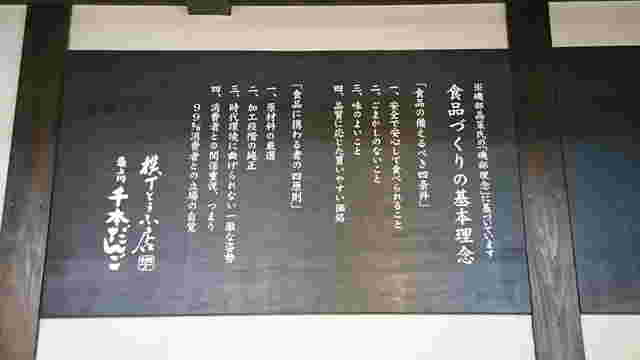 ※磯部晶策氏の「磯部理念」に基づいています
食品づくりの基本理念
「食品の備えるべき四条件」
一、安全で安心して食べられること
二、ごまかしのないこと
三、味のよいこと
四、品質に応じた買いやすい価格
「食品に携わる者の四原則」
一、原材料の厳選
二、加工段階の純正
三、時代環境に曲げられない一徹な姿勢
四、消費者との関係重視、つまり
99%消費者との立場の自覚
横丁とうふ店
最上川
千本だんご